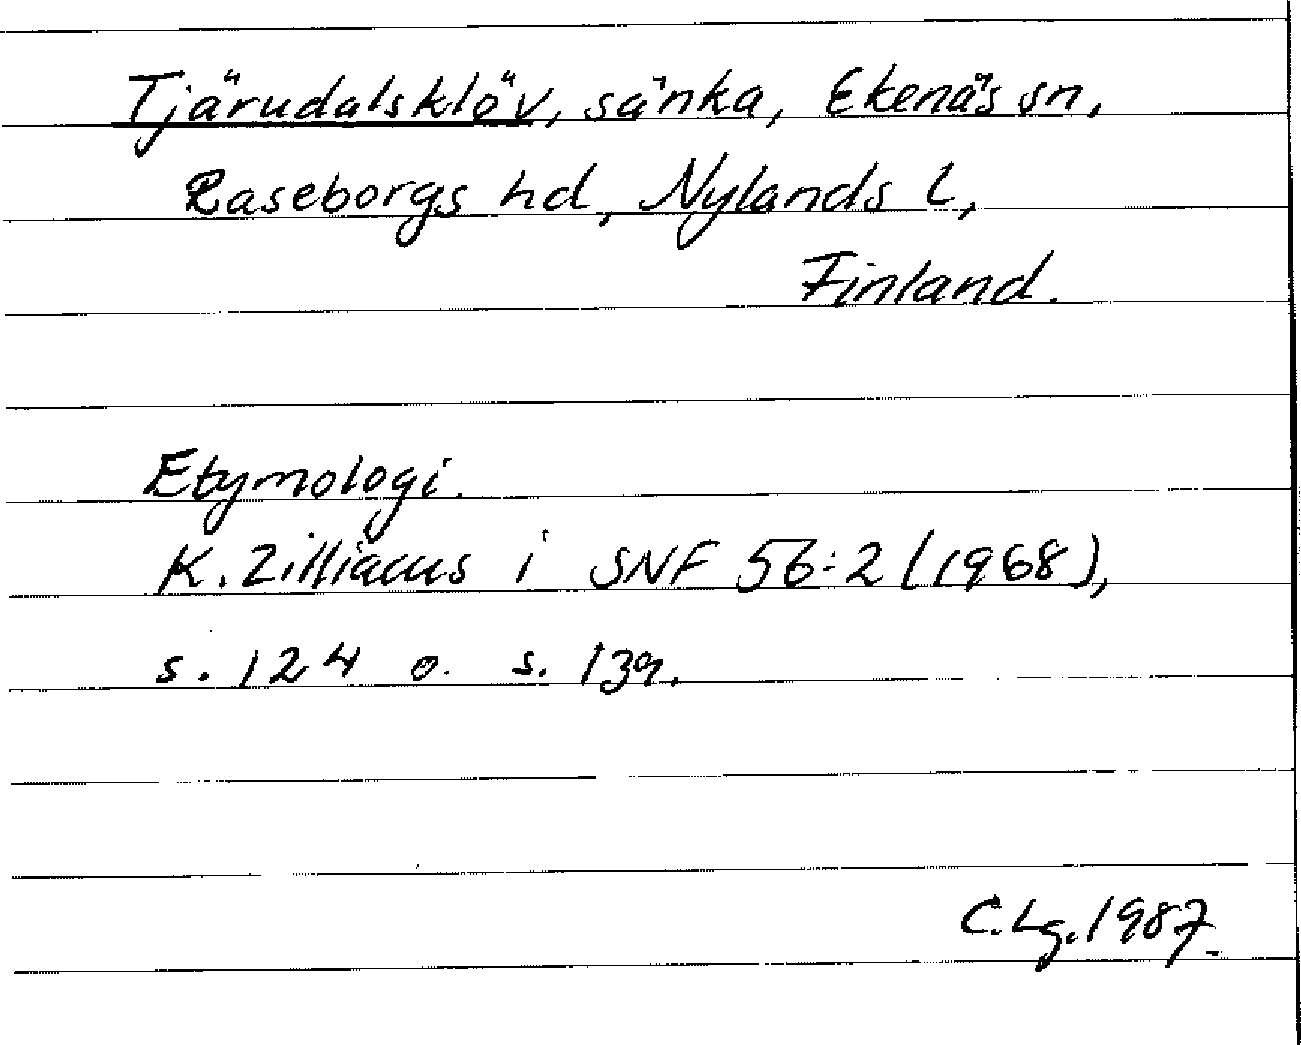 Tjärudalsklöv, sänka, Ekenäs sn,
Raseborgs hd, Nylands l,
Finland.
Etymologi.
K. Zilliacus i SNF 56:2 (1968),
s. 124 o. s. 139.
C.Lg. 1987.